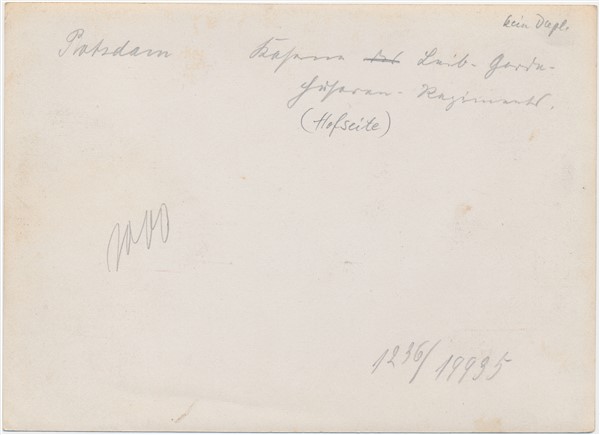 kein Dupl.
Potsdam Kaserne des Leib-Garde-
Husaren-Regiments.
(Hofseite)
1236/19935